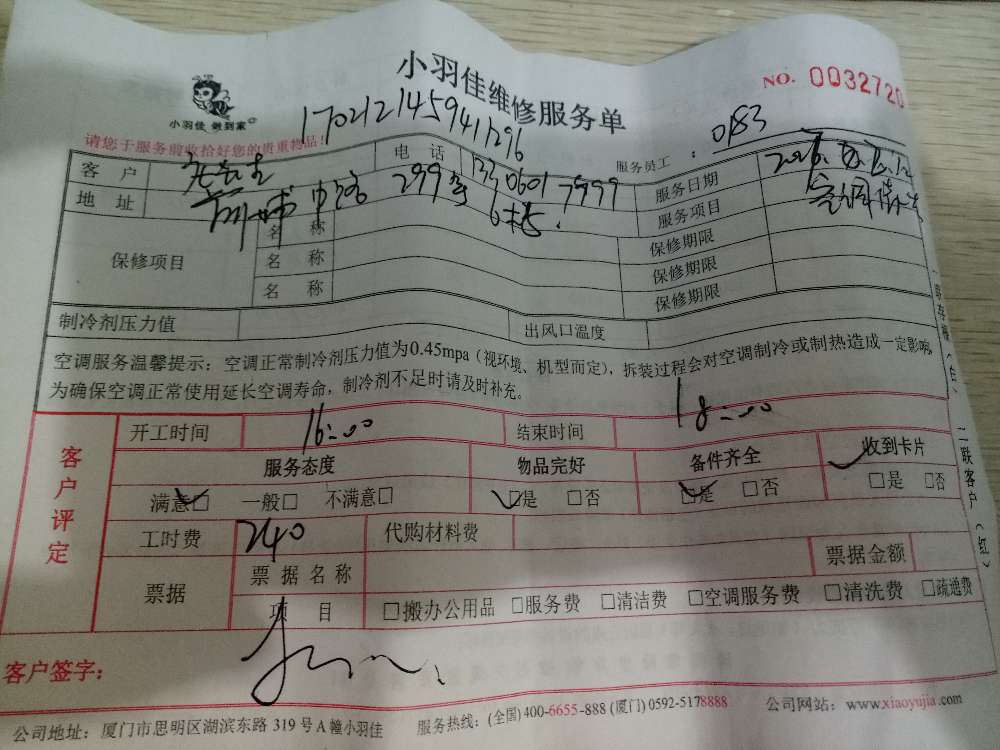 小羽佳维修服务单
NO. 0032720
小羽佳 做到家
17021214594 1296
请您于服务前收拾好您的贵重物品!
服务员工: 0183
客户 先生 电话 133 0601 7999 服务日期
地址 299号 6栋. 服务项目 空调
保修项目 名称 保修期限
名称 保修期限
名称 保修期限
制冷剂压力值 出风口温度
空调服务温馨提示:空调正常制冷剂压力值为0.45mpa(视环境、机型而定),拆装过程会对空调制冷或制热造成一定影响,
为确保空调正常使用延长空调寿命,制冷剂不足时请及时补充。
客户评定
开工时间 16:00 结束时间 18:00
服务态度 物品完好 备件齐全 收到卡片
满意□ 一般□ 不满意□ □是 □否 □是 □否 □是 □否
工时费 240 代购材料费
票据 票据名称 票据金额
项目 □搬办公用品 □服务费 □清洁费 □空调服务费 □清洗费 □疏通费
二联客户(红)
客户签字:
公司地址:厦门市思明区湖滨东路 319 号 A 幢小羽佳 服务热线:(全国) 400-6655-888 (厦门) 0592-5178888 公司网站:www.xiaoyujia.com